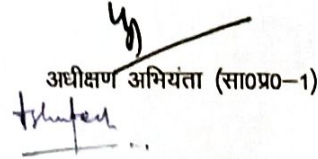 अधीक्षण अभियंता (सा0प्र0–1)